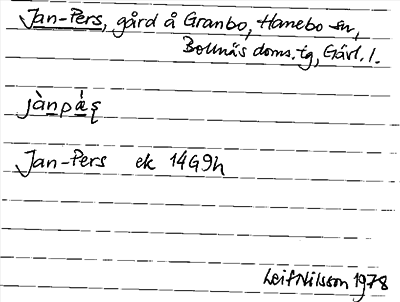 Jan-Pers, gård å Granbo, Hanebo sn,
Bollnäs doms.tg, Gävl. l.
jànpǽʂ
Jan-Pers ek 14G9h
Leif Nilsson 1978